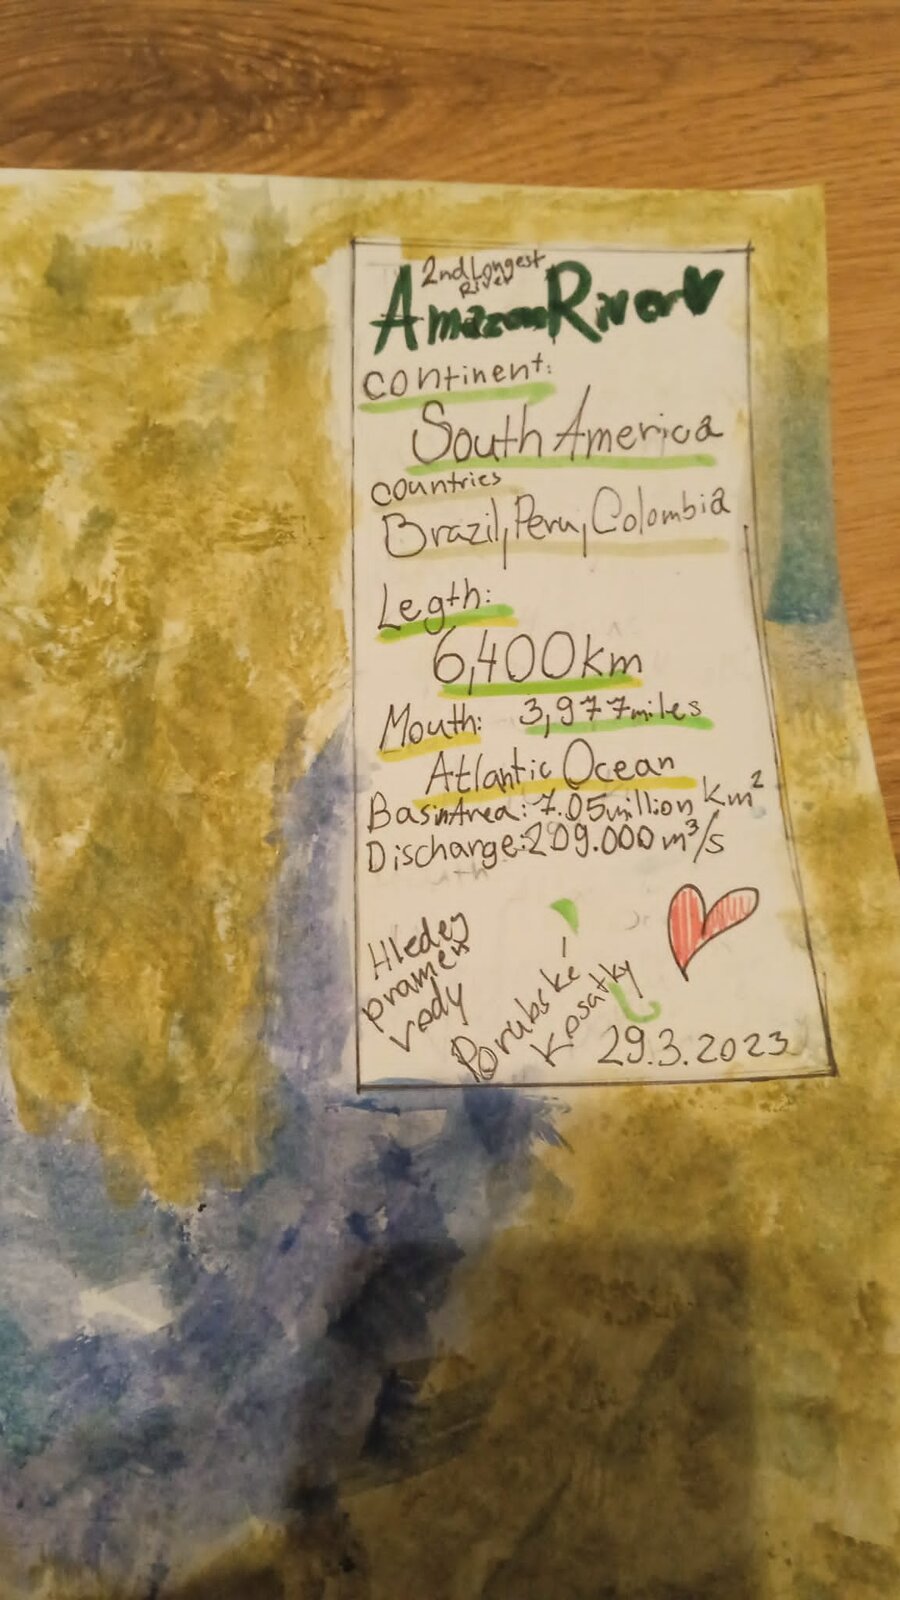 2nd Longest
River
Amazon River
continent:
South America
countries
Brazil, Peru, Colombia
Legth:
6,400km
Mouth: 3,977miles
Atlantic Ocean
Basin Area: 7.05million km²
Discharge: 209.000 m³/s
Hledey
pramen
vody
Porubské
Kosatky
29.3.2023